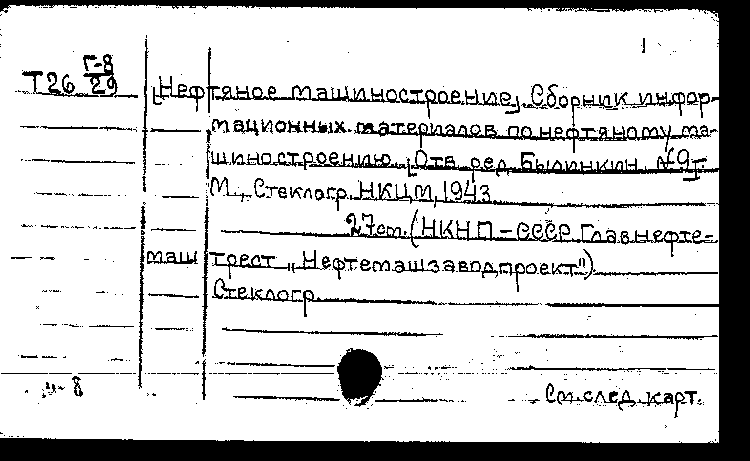 1
Т26 Г-8/29
[Нефтяное машиностроение]. Сборник инфор-
мационных материалов по нефтяному ма-
шиностроению. [Отв. ред. Былинкин
М., Стеклогр. НКЦМ, 1943.
27 ст. (НКНП - СССР. Главнефте-
маш трест „Нефтемашзаводпроект").
Стеклогр.
См. след. карт.